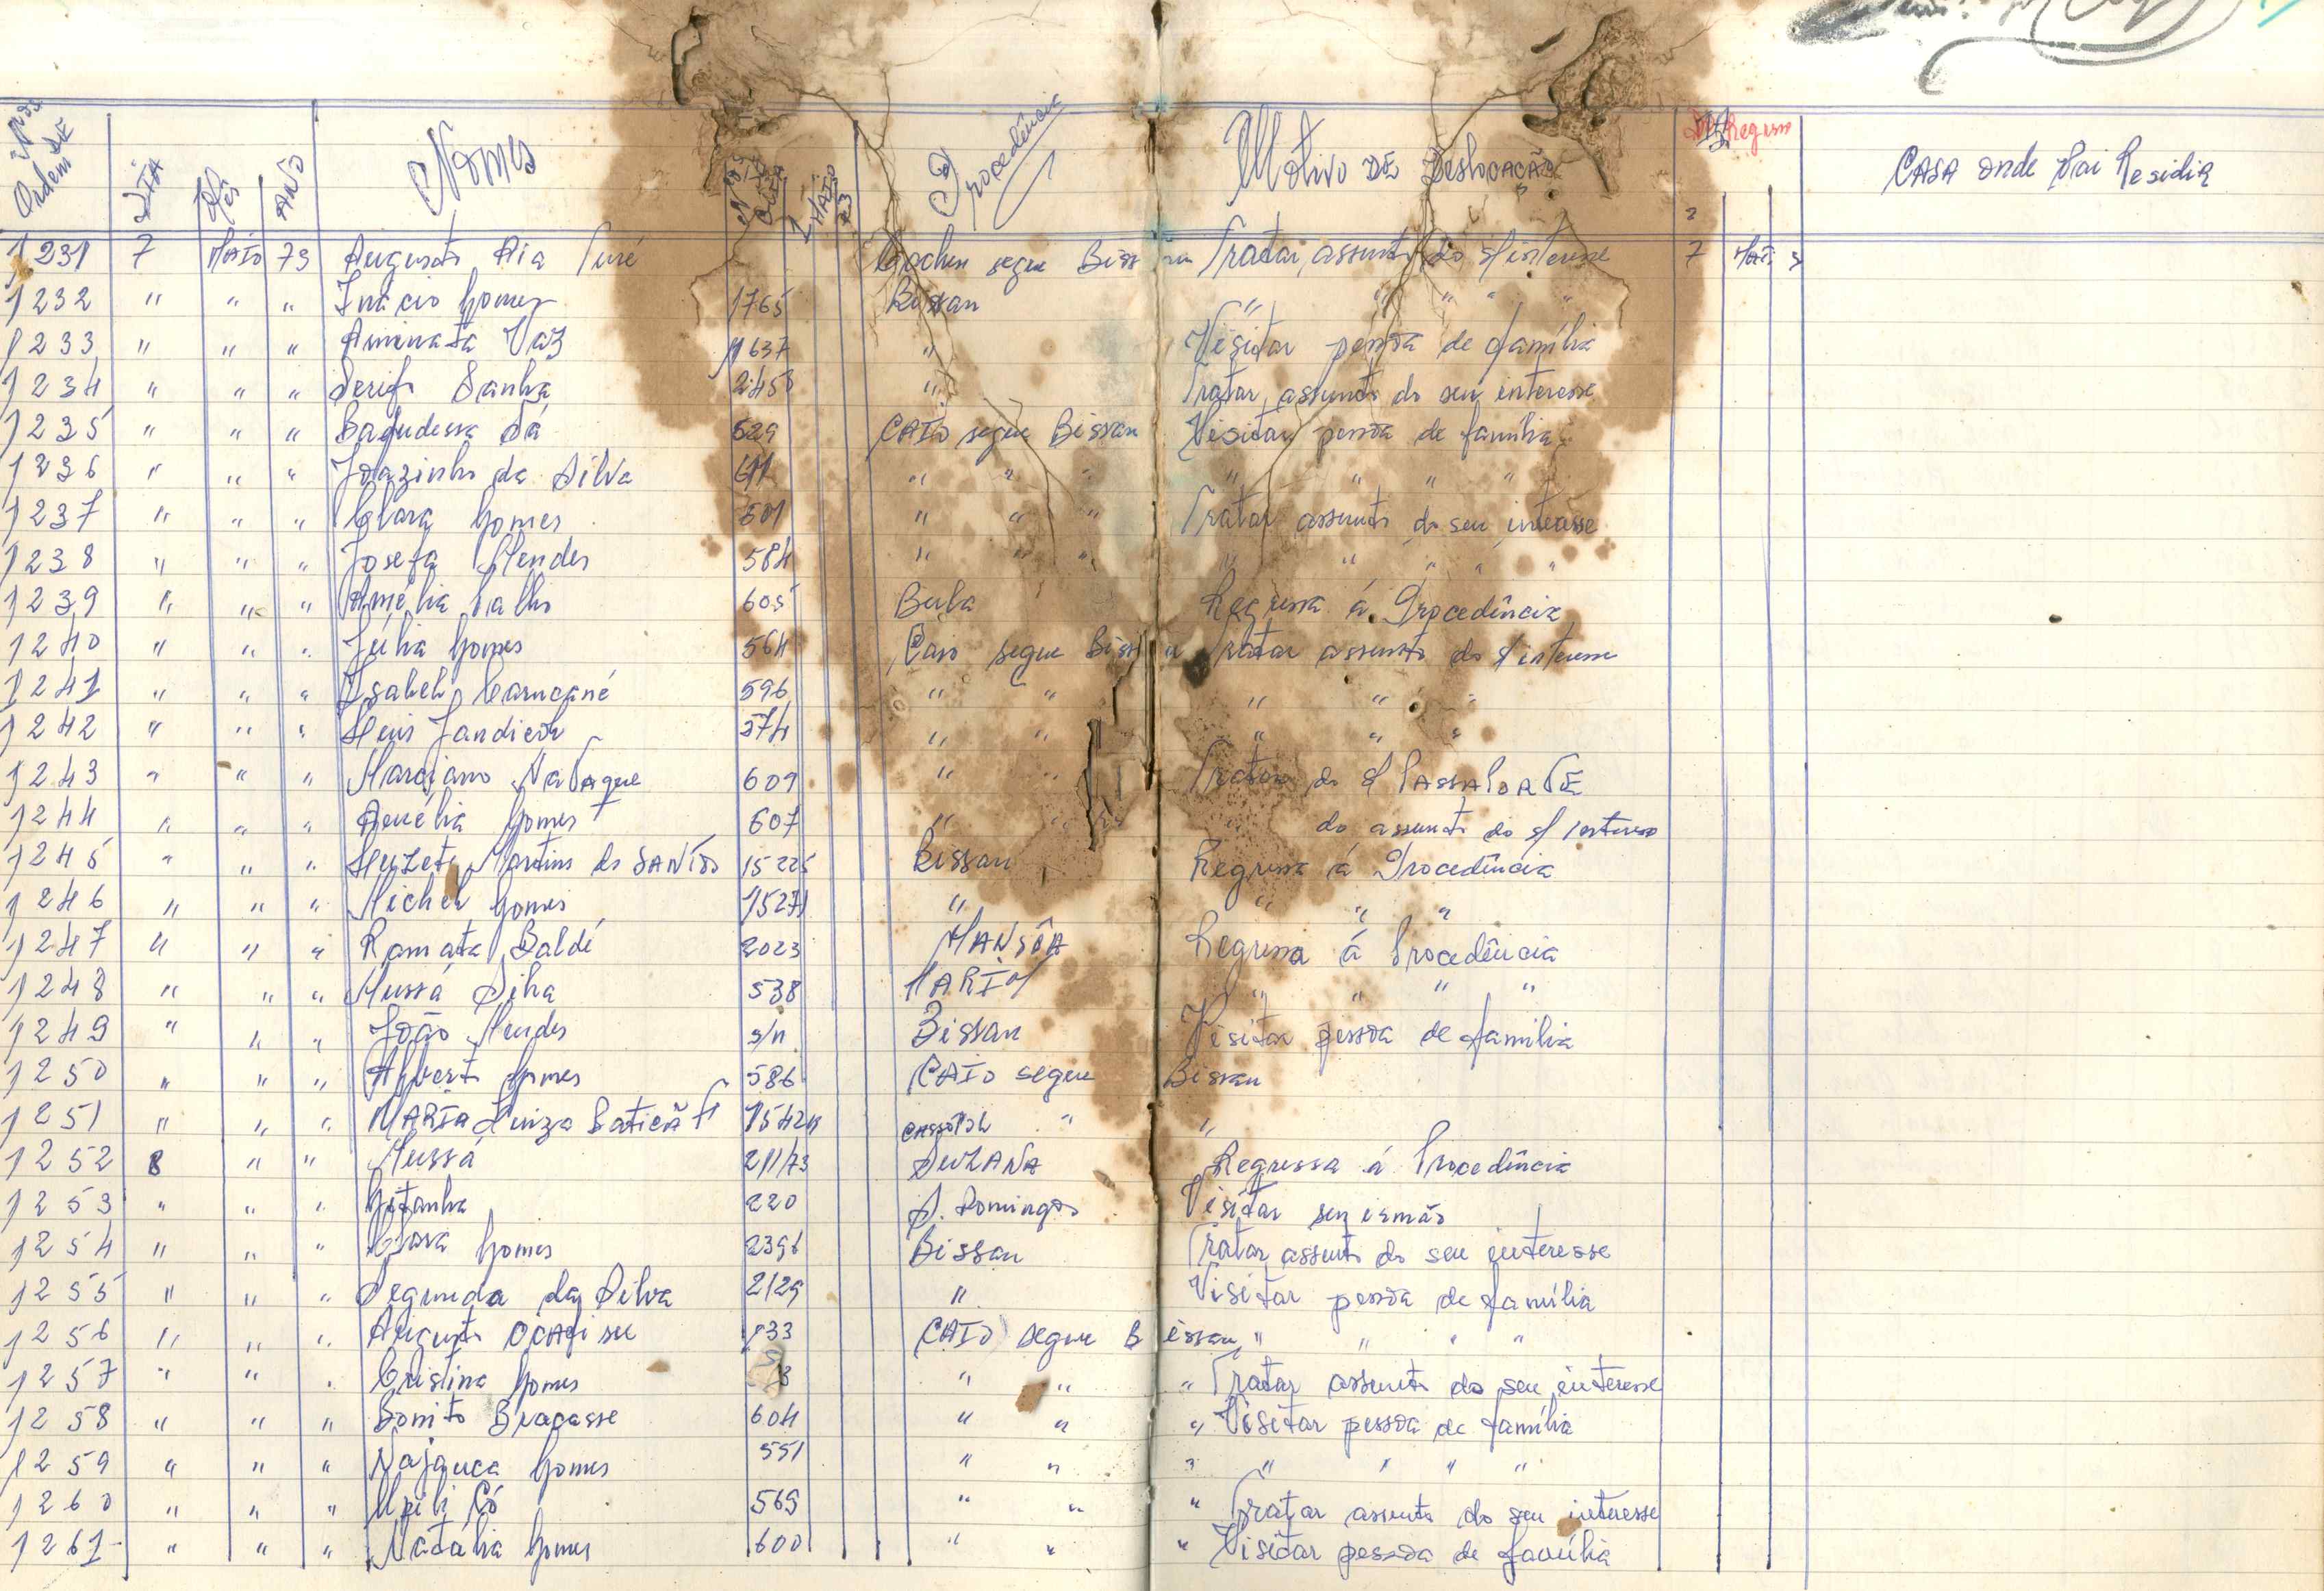 Ordem DE DIA Mês ANO Nomes Procedência Motivo DE Deslocação Regresso CASA onde Vai Residir
1231 7 MAIO 73 Augusto Dia Turé Cacheu segue Bissau Tratar assunto do s/interesse 7
1232 " " " Inácio Gomes 1765 Bissau " " " "
1233 " " " Aminata Vaz 1637 " Visitar pessoa de família
1234 " " " Serifo Sanha 2453 " Tratar assunto do seu interesse
1235 " " " Sá 629 CAIO segue Bissau Visitar pessoa de família
1236 " " " Joãozinho da Silva 611 " " " " " " "
1237 " " " Clara Gomes 501 " " " Tratar assunto do seu interesse
1238 " " " Josefa Mendes 584 " " " " " " " "
1239 " " " Amélia 605 Bula Regressa á Procedência
1240 " " " Júlia Gomes 564 Caió segue Bissau Tratar assunto do s/interesse
1241 " " " Isabel 596 " " " " "
1242 " " " 574 " " " " "
1243 " " " Marciano 609 " " Tratar do s/ PASSAPORTE
1244 " " " Aurélia Gomes 607 " " " do assunto do s/ interesse
1245 " " " Martins dos SANTOS 15225 Bissau Regressa á Procedência
1246 " " " Michel Gomes 15271 " " " "
1247 " " " Ramata Baldé 2023 MANSÔA Regressa á Procedência
1248 " " " Mussá 538 " " " "
1249 " " " João Mendes s/n Bissau Visitar pessoa de família
1250 " " " Alberto Gomes 586 CAIO segue Bissau
1251 " " " MARIA Luiza 1542 " "
1252 8 " " Mussá 211/73 SUZANA Regressa á Procedência
1253 " " " 220 S. Domingos Visitar seu irmão
1254 " " " Clara Gomes 2396 Bissau Tratar assunto do seu interesse
1255 " " " Segunda da Silva 2129 " Visitar pessoa de família
1256 " " " Augusto 133 CAIO segue Bissau " " " "
1257 " " " Cristina Gomes " " " Tratar assunto do seu interesse
1258 " " " Bonito 604 " " " Visitar pessoa de família
1259 " " " Gomes 551 " " " " " " "
1260 " " " Upili Có 569 " " " Tratar assunto do seu interesse
1261 " " " Natália Gomes 600 " " " Visitar pessoa de família